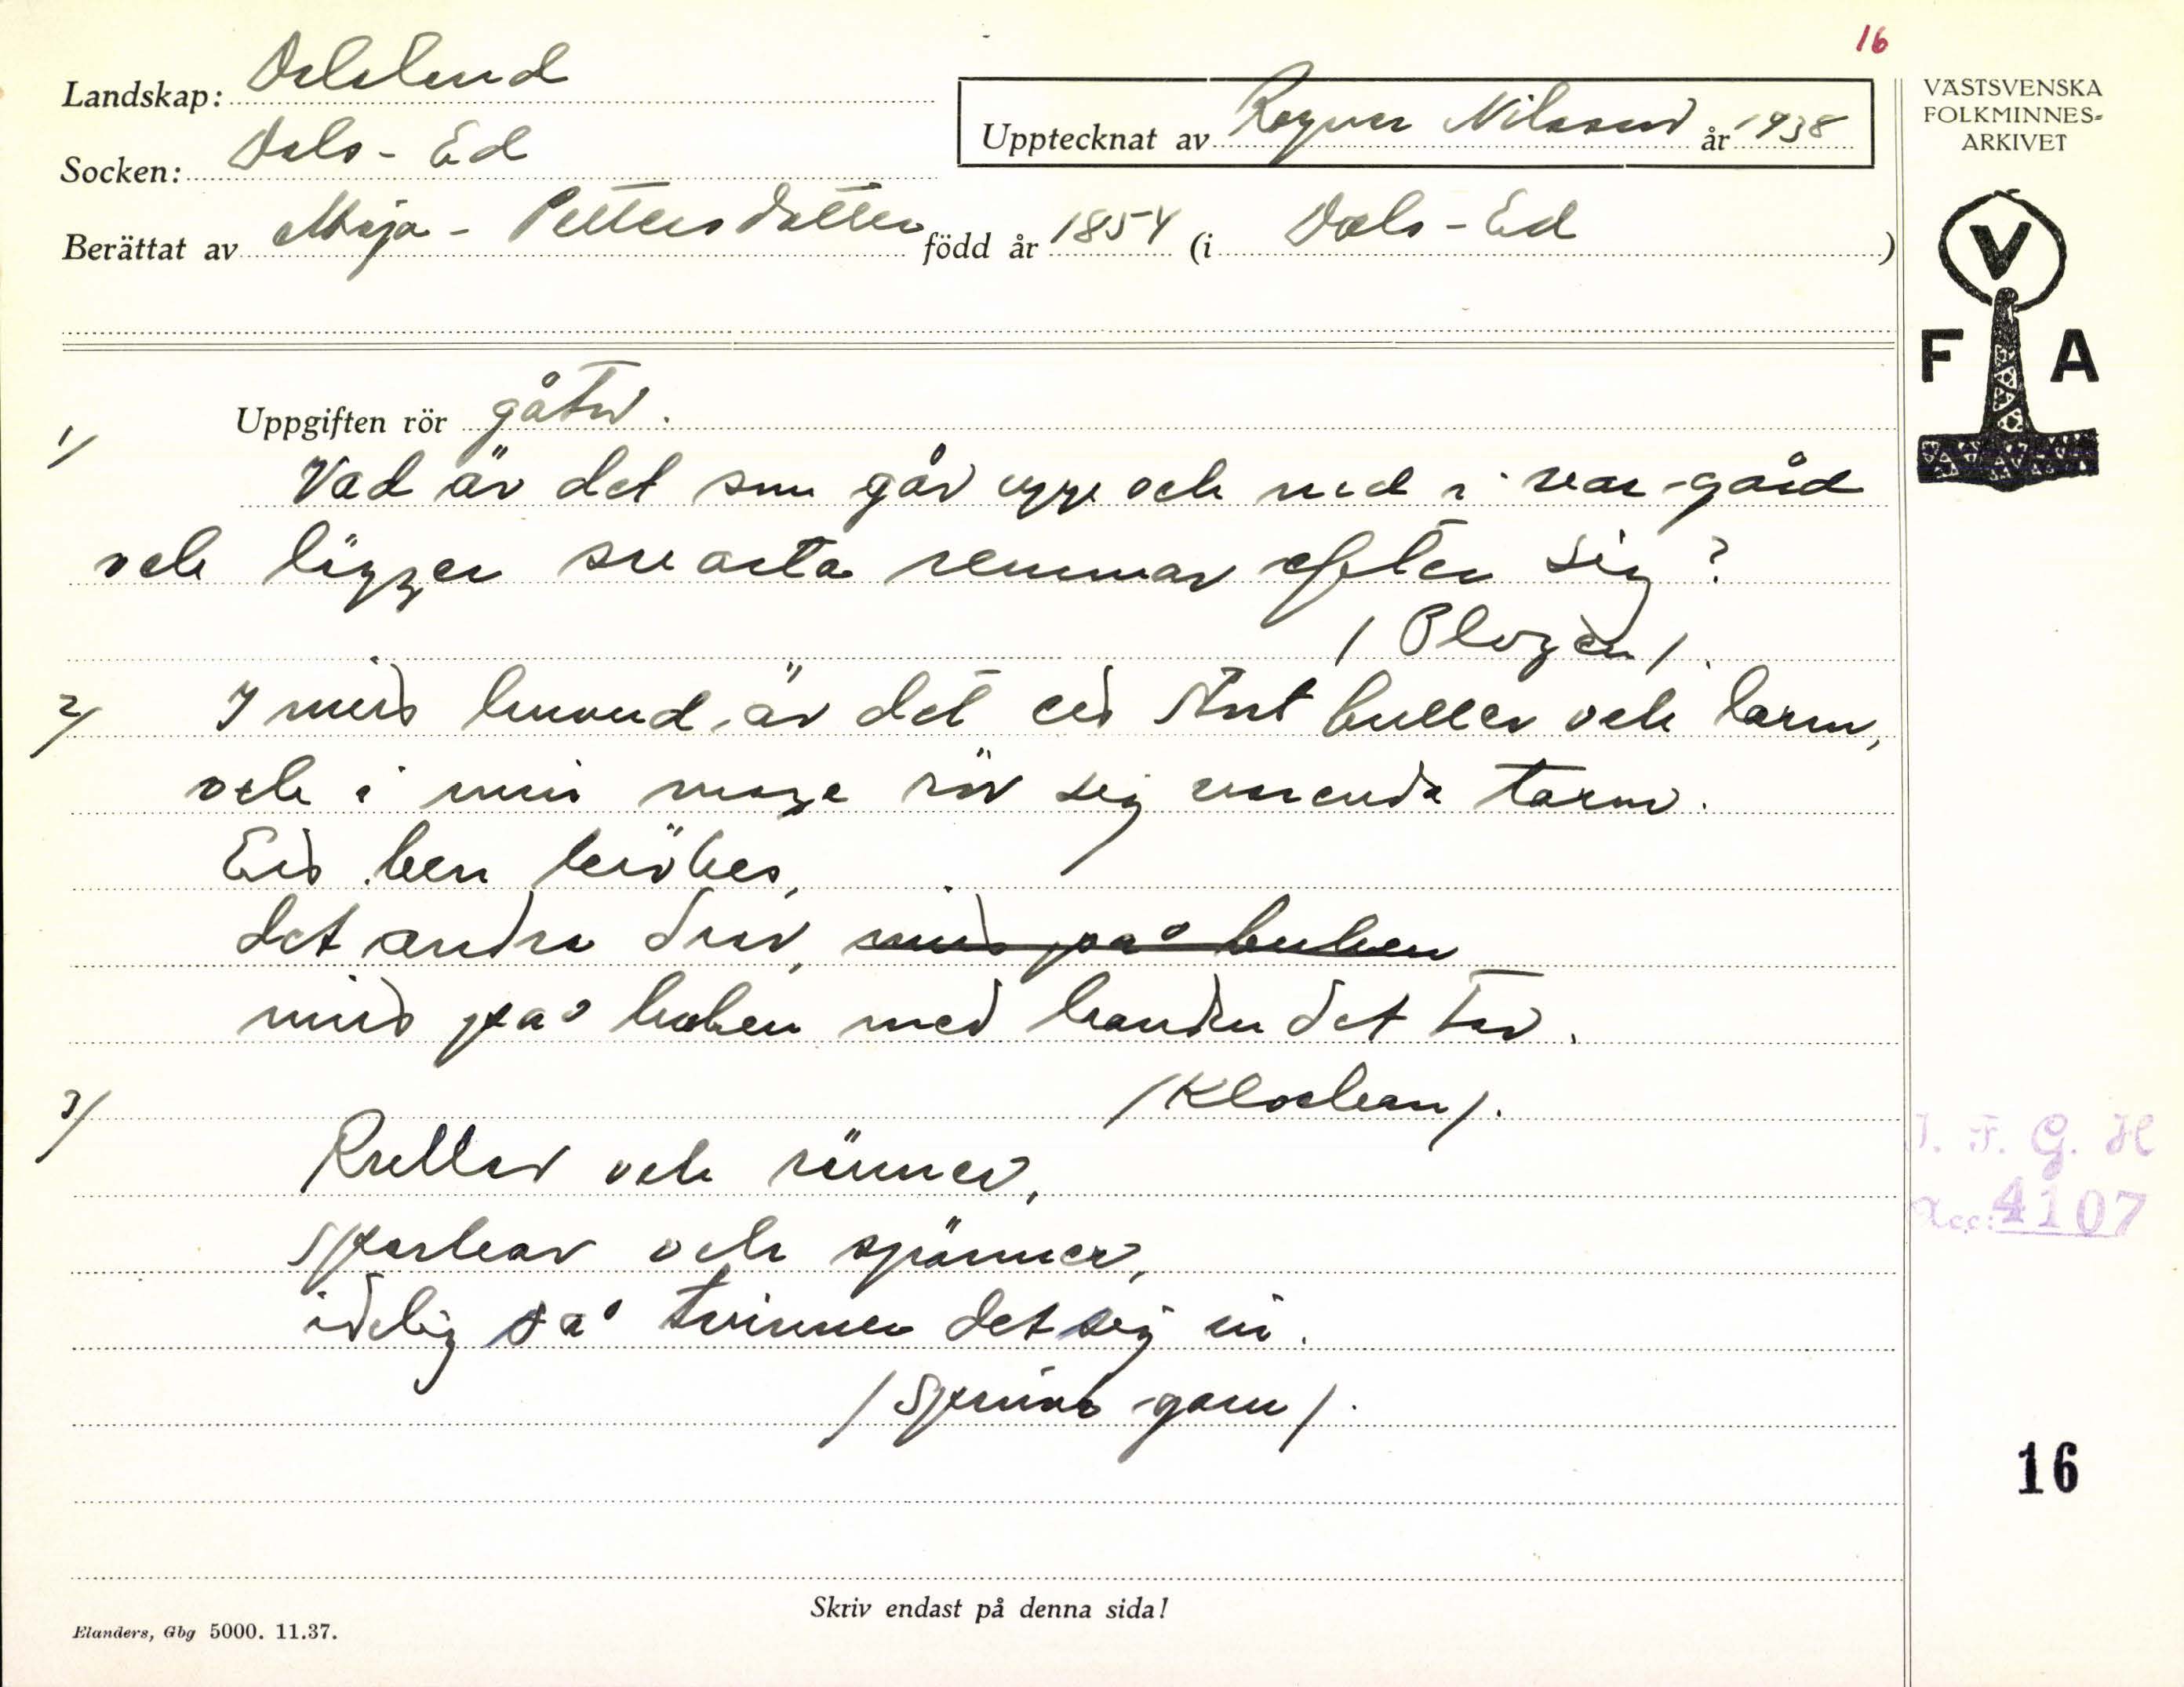 16
Landskap: Dalsland
Socken: Dals-Ed
Upptecknat av Ragnar Nilsson år 1938
Berättat av Maja-Pettersdotter född år 1854 (i Dals-Ed)
VÄSTSVENSKA
FOLKMINNES-
ARKIVET
V
F A
Uppgiften rör gåtor.
1/
Vad är det som går upp och ned i var gård
och lägger svarta remmar efter sig?
/Plogen/.
2/ I mitt huvud är det ett stort buller och larm,
och i min mage rör sig tarm.
Ett ben
det andra
min på buken
min på buken med handen det tar.
/Klockan/.
3/
Rullar och rinner,
och spinner,
idelig så tvinnar det sig in.
/Spinn-garn/.
I. F. G. H
Acc: 4107
16
Skriv endast på denna sida!
Elanders, Gbg 5000. 11.37.